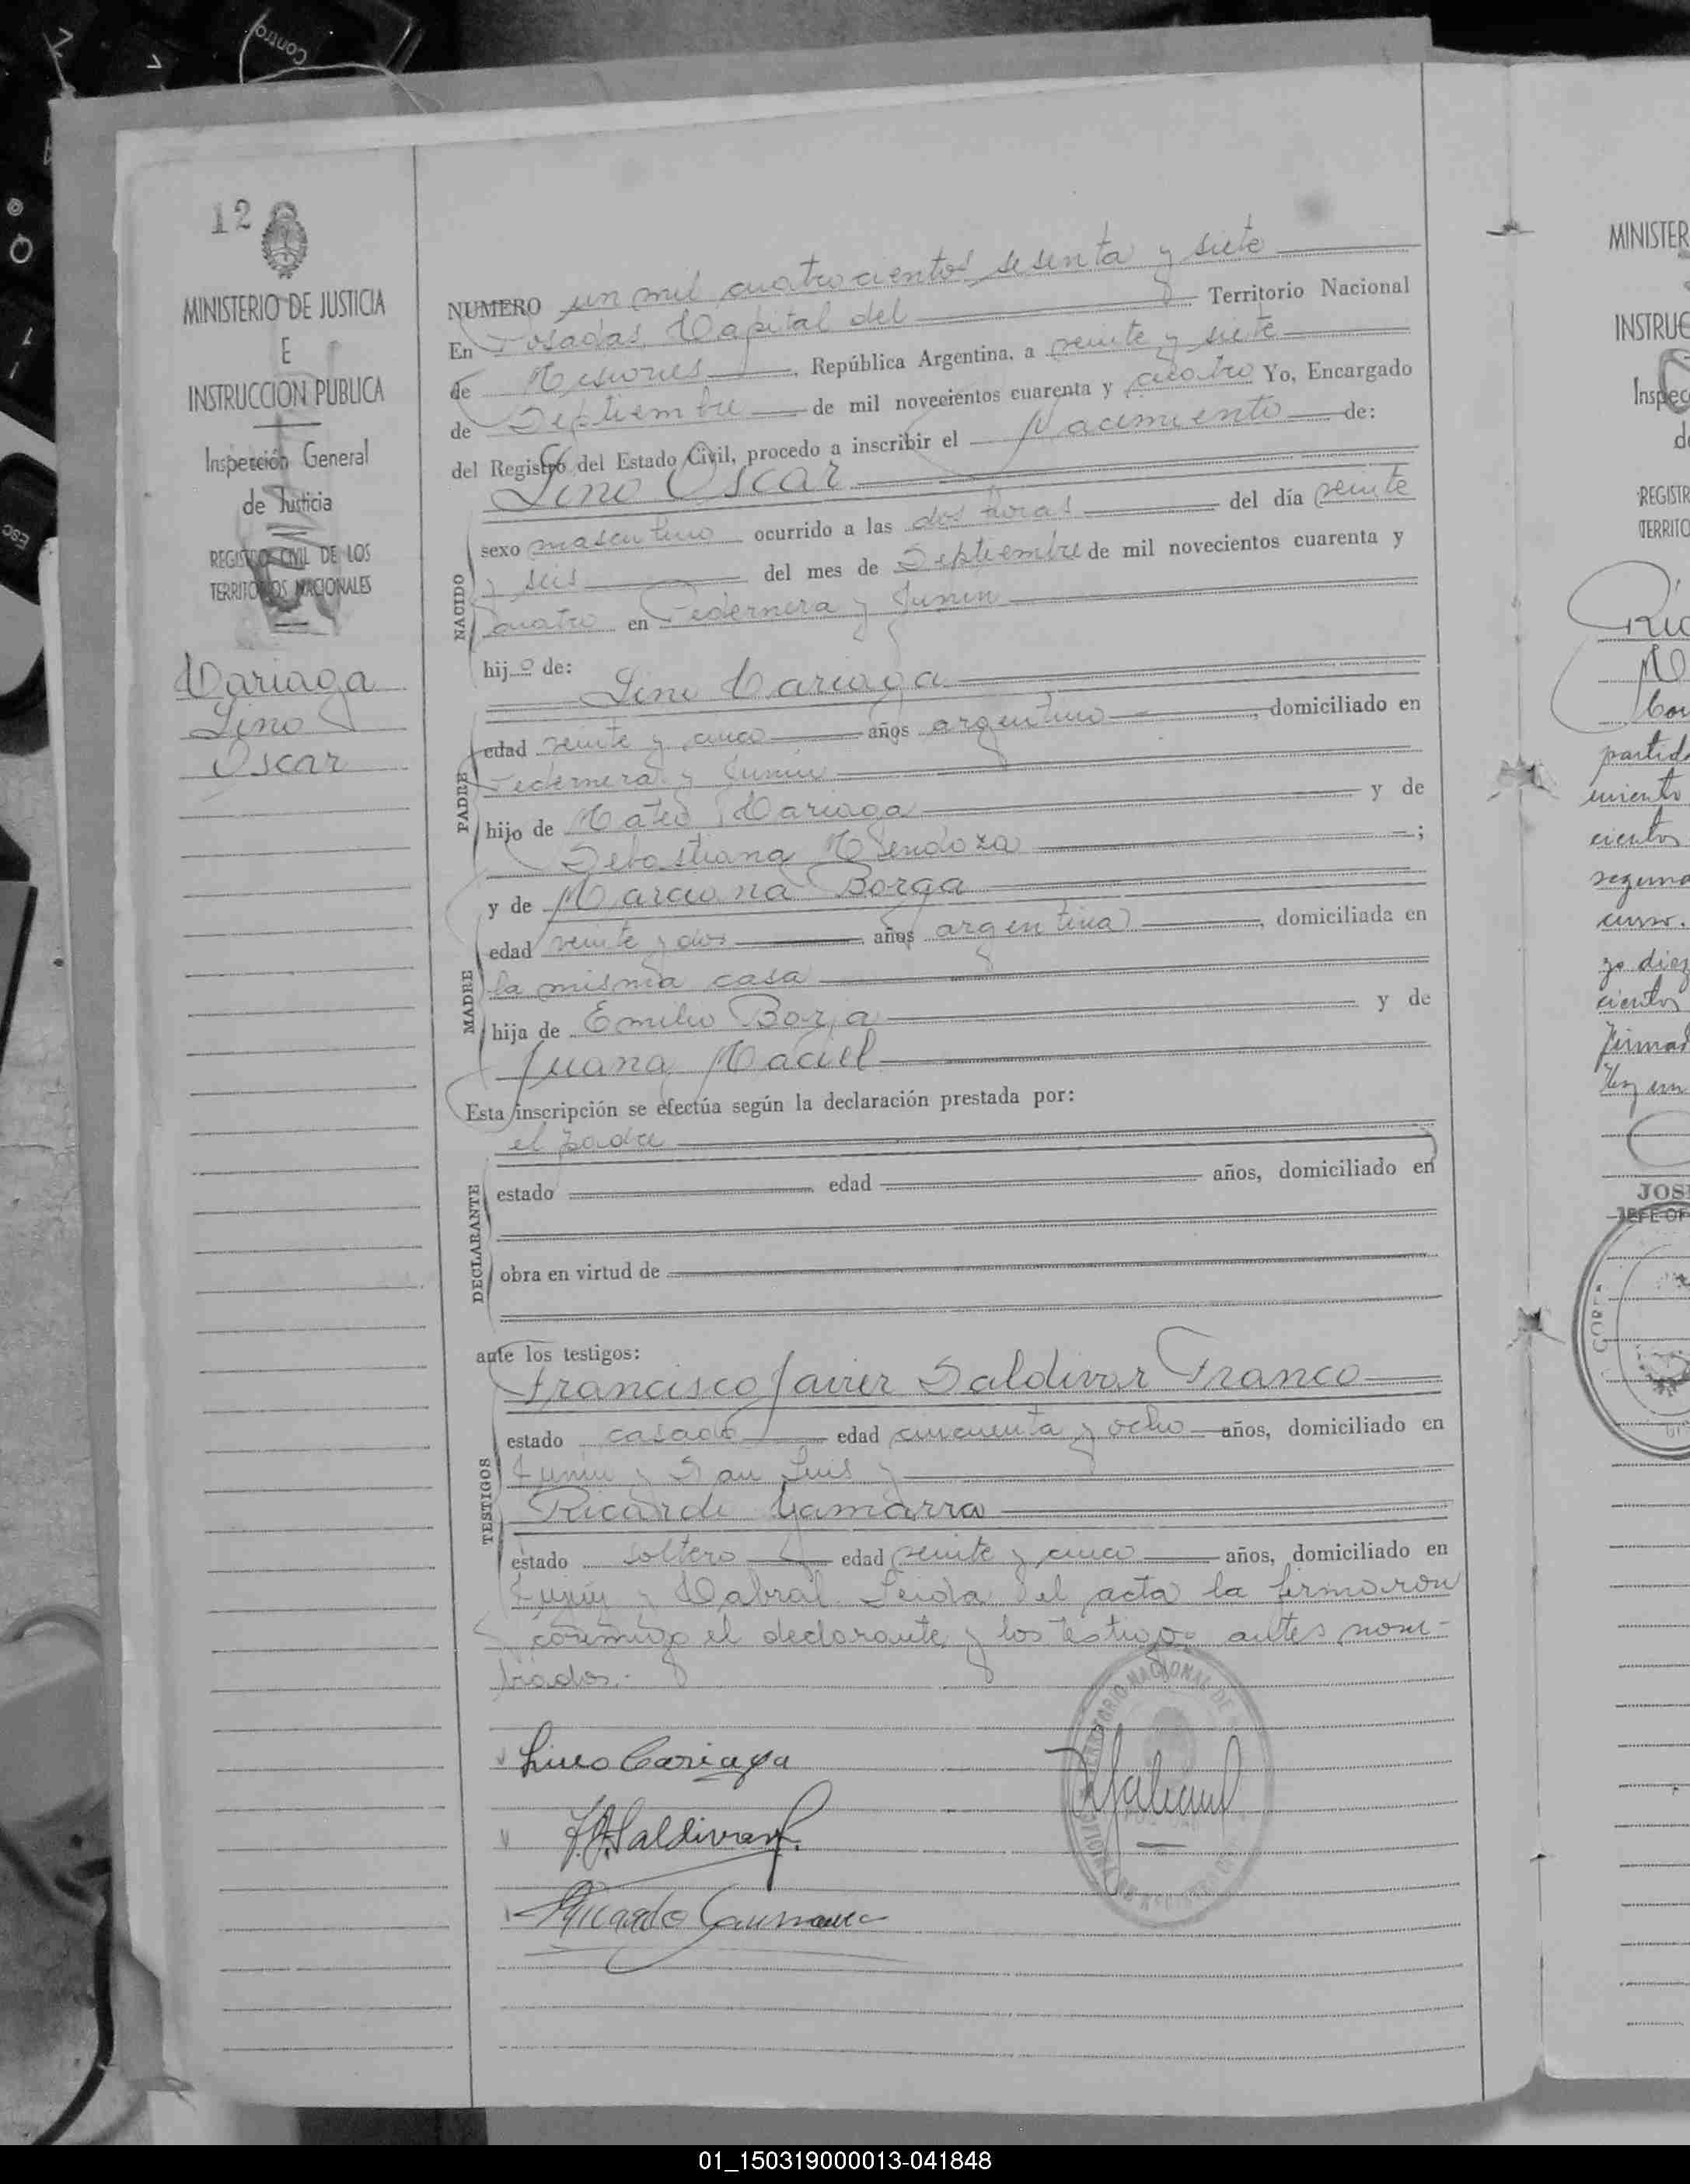 Control
ESC
12
MINISTERIO DE JUSTICIA
E
INSTRUCCION PUBLICA
Inspección General
de Justicia
REGISTRO CIVIL DE LOS
TERRITORIOS NACIONALES
Cariaga
Lino
Oscar
NUMERO un mil cuatrocientos sesenta y siete
En Posadas, Capital del Territorio Nacional
de Misiones, República Argentina, a veinte y siete
de Septiembre de mil novecientos cuarenta y cuatro Yo, Encargado
del Registro del Estado Civil, procedo a inscribir el Nacimiento de:
Lino Oscar
NACIDO
sexo masculino ocurrido a las dos horas del día veinte
y seis del mes de Septiembre de mil novecientos cuarenta y
cuatro en Pedernera y Junin
hijo de:
Lino Cariaga
PADRE
edad veinte y cinco años argentino, domiciliado en
Pedernera y Junin
hijo de Mateo Cariaga y de
Sebastiana Mendoza;
y de Marciona Borga
MADRE
edad veinte y dos años argentina, domiciliada en
la misma casa
hija de Emilio Borja y de
Juana Maciel
Esta inscripción se efectúa según la declaración prestada por:
el padre
DECLARANTE
estado edad años, domiciliado en
obra en virtud de
ante los testigos:
Francisco Javier Saldivar Franco
TESTIGOS
estado casado edad cincuenta y ocho años, domiciliado en
Junin y San Luis y
Ricardo Gamarra
estado soltero edad veinte y cinco años, domiciliado en
Junin y Cabral. Leida el acta la firmaron
conmigo el declarante y los testigos antes nom-
brados.-
Lino Cariaga
F.J. Saldivar F.
Ricardo Gamarra
TERRITORIO NACIONAL DE
MINISTER
INSTRUC
Inspec
d
REGISTR
TERRITO
partida
miento
cientos
segund
curso.
go diez
cientos
firmad
Hay un
JOS
JEFE OF
01_150319000013-041848